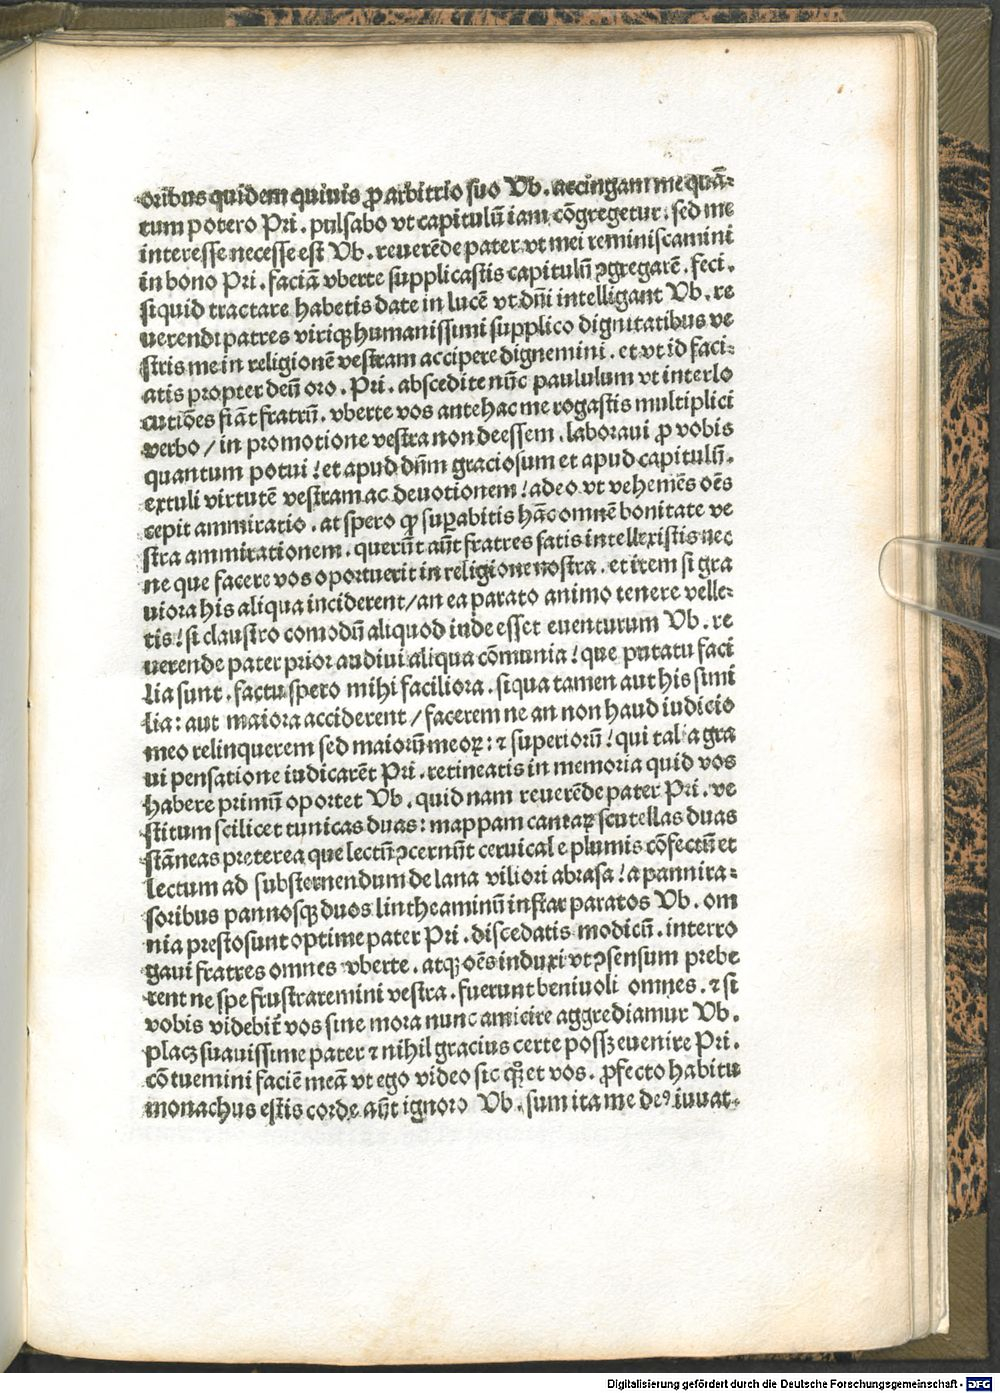 oribus quidem quiuis ꝓ arbitrio suo Vb. accingam me quā⸗
tum potero Pri. pulsabo vt capitulū iam cōgregetur. sed me
interesse necesse est Vb. reuerēde pater vt mei reminiscamini
in bono Pri. faciā vberte supplicastis capitulū ꝯgregarē. feci.
si quid tractare habetis date in lucē vt dn̄i intelligant Vb. re
uerendi patres viriqꝫ humanissimi supplico dignitatibus ve
stris me in religionē vestram accipere dignemini. et vt id faci⸗
atis propter deū oro. Pri. abscedite nūc paululum vt interlo
cutiōes fiāt fratrū. vberte vos antehac me rogastis multiplici
verbo / in promotione vestra non deessem. laboraui ꝓ vobis
quantum potui! et apud dn̄m graciosum et apud capitulū.
extuli virtutē vestram ac deuotionem! adeo vt vehemēs oēs
cepit ammiratio. at spero ꝙ suꝑabitis hāc omnē bonitate ve
stra ammirationem. querūt aūt fratres satis intellexistis nec
ne que facere vos oportuerit in religione nostra. et item si gra
uiora his aliqua inciderent / an ea parato animo tenere velle⸗
tis! si claustro comodū aliquod inde esset euenturum Vb. re
uerende pater prior audiui aliqua cōmunia! que putatu faci
lia sunt. factu spero mihi faciliora. si qua tamen aut his simi
lia: aut maiora acciderent / facerem ne an non haud iudicio
meo relinquerem sed maiorū meoꝝ: ⁊ superiorū! qui talia gra
ui pensatione iudicarēt Pri. retineatis in memoria quid vos
habere primū oportet Vb. quid nam reuerēde pater Pri. ve
stitum scilicet tunicas duas: mappam cantaꝝ scutellas duas
stāneas preterea que lectū ꝯcernūt ceruical e plumis cōfectū et
lectum ad substernendum de lana viliori abrasa! a pannira⸗
soribus pannosqꝫ duos lintheaminū instar paratos Vb. om
nia presto sunt optime pater Pri. discedatis modicū. interro
gaui fratres omnes vberte. atqꝫ oēs induxi vt ꝯsensum prebe
rent ne spe frustraremini vestra. fuerunt beniuoli omnes. ⁊ si
vobis videbit᷑ vos sine mora nunc amicire aggrediamur Vb.
placꝫ suauissime pater ⁊ nihil gracius certe possꝫ euenire Pri.
cōtuemini faciē meā vt ego video sic qꝫ et vos. ꝓfecto habitu
monachus estis corde aūt ignoro Vb. sum ita me deꝰ iuuat.
Digitalisierung gefördert durch die Deutsche Forschungsgemeinschaft - DFG